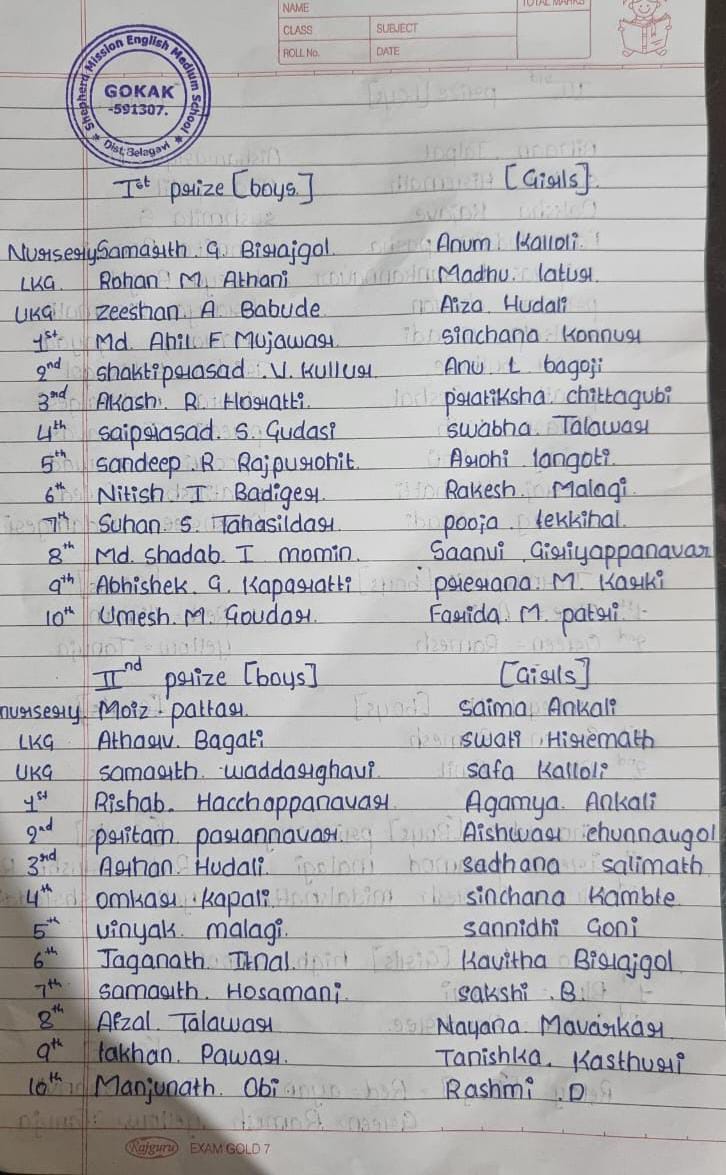 NAME
TOTAL MARKS
CLASS SUBJECT
ROLL No. DATE
Shepherd Mission English Medium School
GOKAK
-591307.
Dist; Belagavi
Ist prize [boys.] [Girls]
Nursery Samarth. G. Birajgol. Anum Kalloli.
LKG. Rohan M. Athani Madhu. latur.
UKG zeeshan. A Babude Aiza. Hudali
1st. Md. Ahil F. Mujawar sinchana konnur
2nd shaktiprasad. V. kullur. Anu L bagoji
3rd Akash. R. Horatti. pratiksha chittagubi
4th saiprasad. S. Gudasi swabha. Talawar
5th sandeep. R Rajpurohit. Arohi langoti.
6th Nitish I Badiger. Rakesh. Malagi.
7th Suhan. S. Tahasildar. pooja. tekkihal.
8th Md. shadab. I momin. Saanvi Giriyappanavar
9th Abhishek. G. Kaparatti prerana. M. Karki
10th Umesh. M. Goudar. Farida. M. patri.
IInd prize [boys] [Girls]
nursery. Moiz. pattar. saima Ankali
LKG Atharv. Bagati swati Hiremath
UKG samarth. waddarghavi. safa Kalloli
1st Rishab. Hacchappanavar. Agamya. Ankali
2nd pritam parannavar. Aishwar chunnaugol
3rd Arhan. Hudali. sadhana salimath
4th omkar. kapali. sinchana Kamble
5th vinyak. malagi. sannidhi Goni
6th Jaganath. Tinal. Kavitha Birajgol
7th samarth. Hosamani. sakshi. B.
8th Afzal. Talawar Nayana Mavarkar.
9th lakhan. Pawar. Tanishka. Kasthuri
10th Manjunath. Obi Rashmi. D
Rajguru EXAM GOLD 7